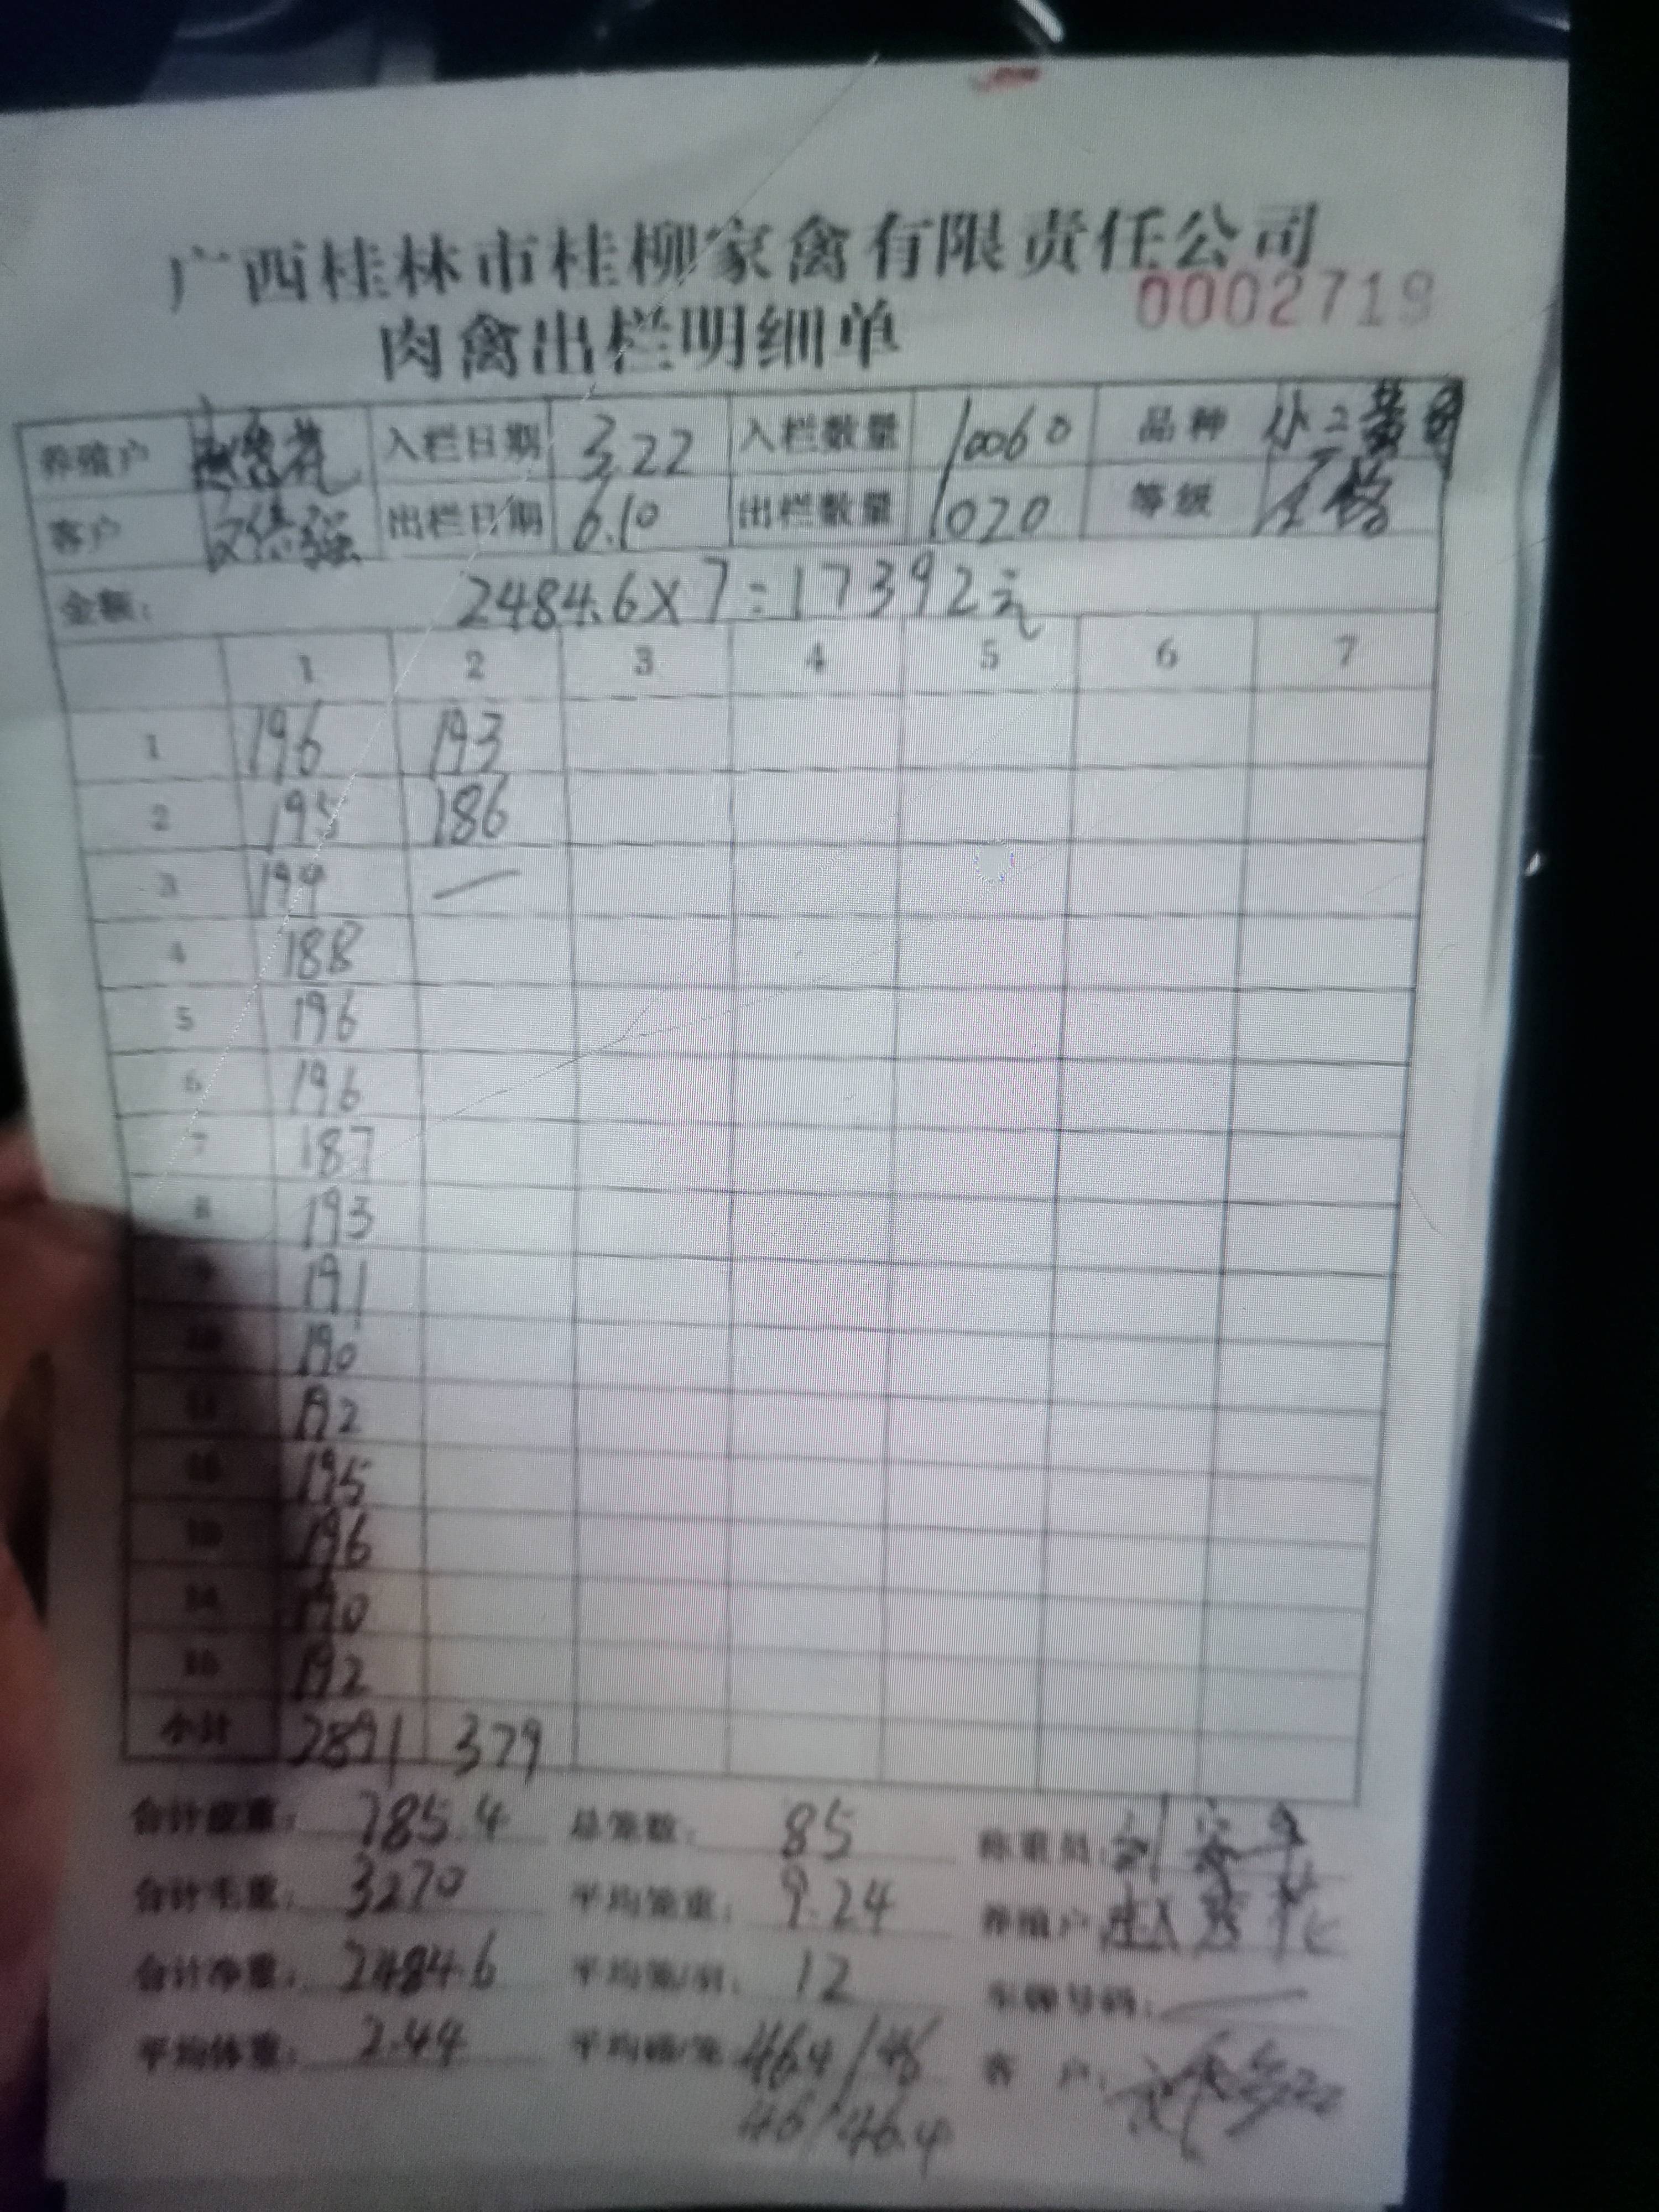 广西桂林市桂柳家禽有限责任公司
肉禽出栏明细单 0002719
养殖户 入栏日期 3.22 入栏数量 10060 品种
客户 出栏日期 6.10 出栏数量 1020 等级
金额: 2484.6×7=17392元
1 2 3 4 5 6 7
1 196 193
2 195 186
3 194 —
4 188
5 196
6 196
7 187
8 193
9 191
10 190
11 192
12 195
13 196
14 190
15 192
小计 2891 379
合计皮重: 785.4 总笼数: 85 称重员:
合计毛重: 3270 平均笼重: 9.24 养殖户
合计净重: 2484.6 平均笼/羽: 12 车牌号码: —
平均体重: 2.44 46.4/46 客户:
46/46.4